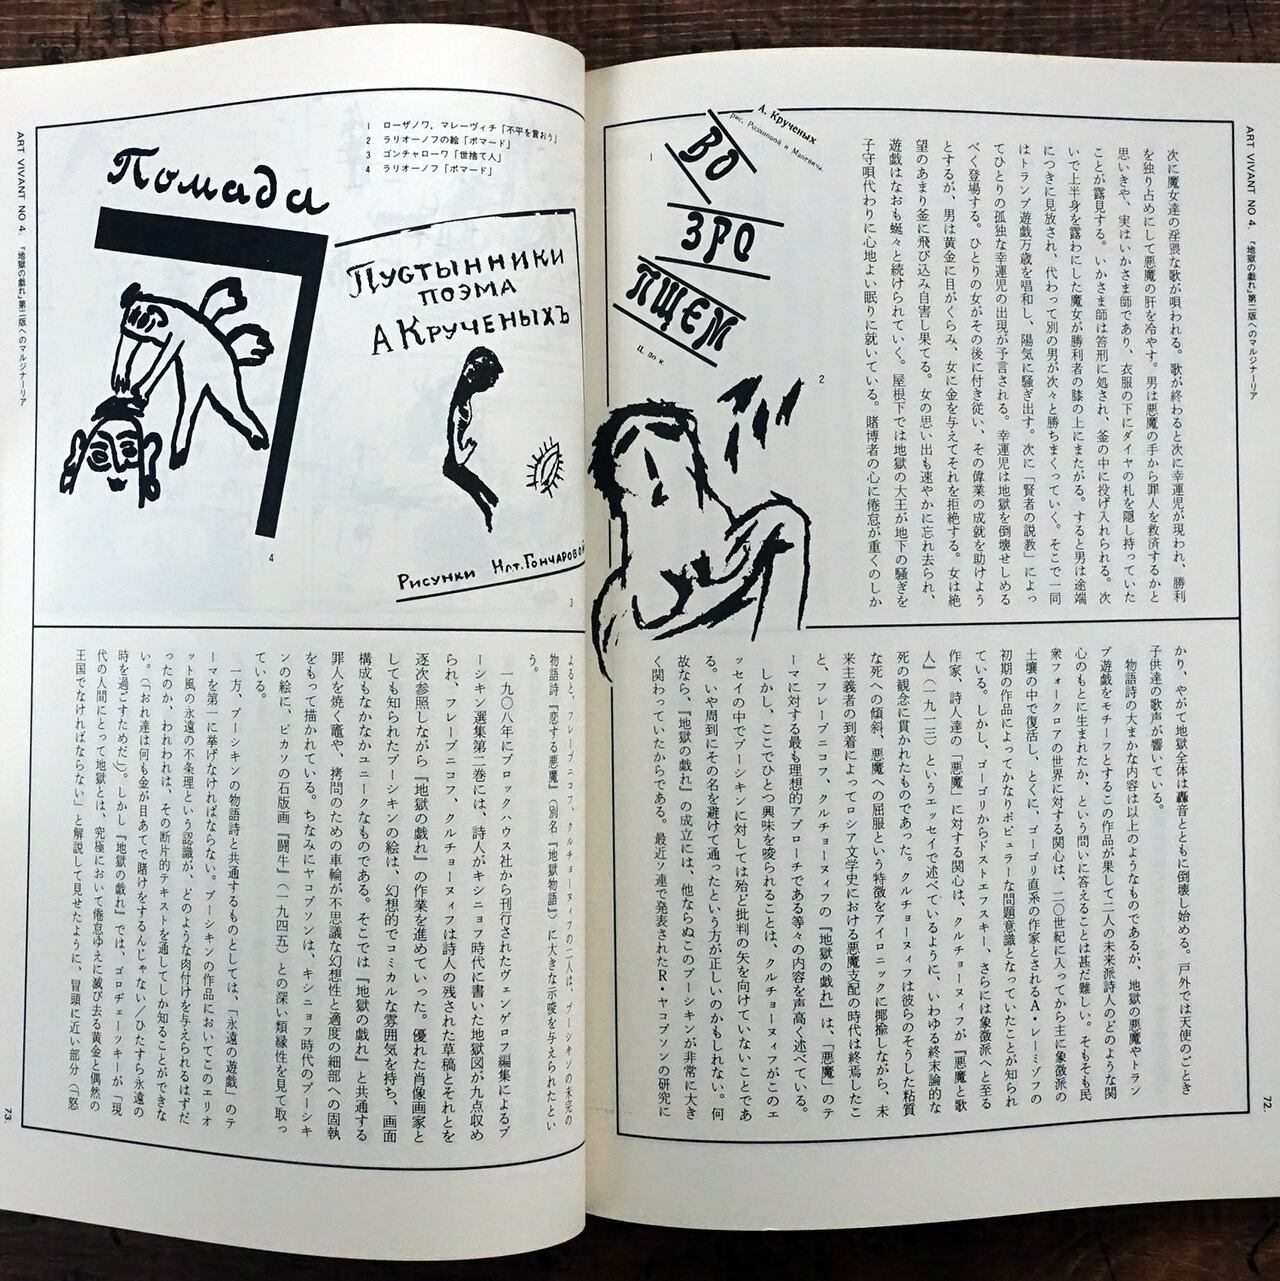 ART VIVANT NO 4. 『地獄の戯れ』第二版へのマルジナーリア
次に魔女達の淫猥な歌が唄われる。歌が終わると次に幸運児が現われ、勝利
を独り占めにして悪魔の肝を冷やす。男は悪魔の手から罪人を救済するかと
思いきや、実はいかさま師であり、衣服の下にダイヤの札を隠し持っていた
ことが露見する。いかさま師は笞刑に処され、釜の中に投げ入れられる。次
いで上半身を露わにした魔女が勝利者の膝の上にまたがる。すると男は途端
につきに見放され、代わって別の男が次々と勝ちまくっていく。そこで一同
はトランプ遊戯万歳を唱和し、陽気に騒ぎ出す。次に「賢者の説教」によっ
てひとりの孤独な幸運児の出現が予言される。幸運児は地獄を倒壊せしめる
べく登場する。ひとりの女がその後に付き従い、その偉業の成就を助けよう
とするが、男は黄金に目がくらみ、女に金を与えてそれを拒絶する。女は絶
望のあまり釜に飛び込み自害し果てる。女の思い出も速やかに忘れ去られ、
遊戯はなおも蜒々と続けられていく。屋根下では地獄の大王が地下の騒ぎを
子守唄代わりに心地よい眠りに就いている。賭博者の心に倦怠が重くのしか
А. Крученых
рис. Розановой и Малевича.
1
ВО
ЗРО
ПЩЕМ
Ц. 30 к.
2
かり、やがて地獄全体は轟音とともに倒壊し始める。戸外では天使のごとき
子供達の歌声が響いている。
物語詩の大まかな内容は以上のようなものであるが、地獄の悪魔やトラン
プ遊戯をモチーフとするこの作品が果して二人の未来派詩人のどのような関
心のもとに生まれたか、という問いに答えることは甚だ難しい。そもそも民
衆フォークロアの世界に対する関心は、二〇世紀に入ってから主に象徴派の
土壌の中で復活し、とくに、ゴーゴリ直系の作家とされるA・レーミゾフの
初期の作品によってかなりポピュラーな問題意識となっていたことが知られ
ている。しかし、ゴーゴリからドストエフスキー、さらには象徴派へと至る
作家、詩人達の「悪魔」に対する関心は、クルチョーヌィフが『悪魔と歌
人』（一九一三）というエッセイで述べているように、いわゆる終末論的な
死の観念に貫かれたものであった。クルチョーヌィフは彼らのそうした粘質
な死への傾斜、悪魔への屈服という特徴をアイロニックに揶揄しながら、未
来主義者の到着によってロシア文学史における悪魔支配の時代は終焉したこ
と、フレーブニコフ、クルチョーヌィフの『地獄の戯れ』は、「悪魔」のテ
ーマに対する最も理想的アプローチである等々の内容を声高く述べている。
しかし、ここでひとつ興味を唆られることは、クルチョーヌィフがこのエ
ッセイの中でプーシキンに対しては殆ど批判の矢を向けていないことであ
る。いや周到にその名を避けて通ったという方が正しいのかもしれない。何
故なら、『地獄の戯れ』の成立には、他ならぬこのプーシキンが非常に大き
く関わっていたからである。最近ソ連で発表されたR・ヤコブソンの研究に
72.
1 ローザノワ，マレーヴィチ「不平を言おう」
2 ラリオーノフの絵「ポマード」
3 ゴンチャローワ「世捨て人」
4 ラリオーノフ「ポマード」
Помада
4
ПУСТЫННИКИ
ПОЭМА
А КРУЧЕНЫХЪ
РИСУНКИ НЛТ. ГОНЧАРОВОЙ
3
よると、フレーブニコフ、クルチョーヌィフの二人は、プーシキンの未完の
物語詩『恋する悪魔』（別名『地獄物語』）に大きな示唆を与えられたとい
う。
一九〇八年にブロックハウス社から刊行されたヴェンゲロフ編集によるプ
ーシキン選集第二巻には、詩人がキシニョフ時代に書いた地獄図が九点収め
られ、フレーブニコフ、クルチョーヌィフは詩人の残された草稿とそれとを
逐次参照しながら『地獄の戯れ』の作業を進めていった。優れた肖像画家と
しても知られたプーシキンの絵は、幻想的でコミカルな雰囲気を持ち、画面
構成もなかなかユニークなものである。そこでは『地獄の戯れ』と共通する
罪人を焼く竈や、拷問のための車輪が不思議な幻想性と適度の細部への固執
をもって描かれている。ちなみにヤコブソンは、キシニョフ時代のプーシキ
ンの絵に、ピカソの石版画『闘牛』（一九四五）との深い類縁性を見て取っ
ている。
一方、プーシキンの物語詩と共通するものとしては、「永遠の遊戯」のテ
ーマを第一に挙げなければならない。プーシキンの作品においてこのエリオ
ット風の永遠の不条理という認識が、どのような肉付けを与えられるはずだ
ったのか、われわれは、その断片的テキストを通してしか知ることができな
い。（「おれ達は何も金が目あてで賭けをするんじゃない／ひたすら永遠の
時を過ごすためだ」）。しかし『地獄の戯れ』では、ゴロヂェーツキーが「現
代の人間にとって地獄とは、究極において倦怠ゆえに滅び去る黄金と偶然の
王国でなければならない」と解説して見せたように、冒頭に近い部分（「怒
ART VIVANT NO 4. 『地獄の戯れ』第二版へのマルジナーリア
73.